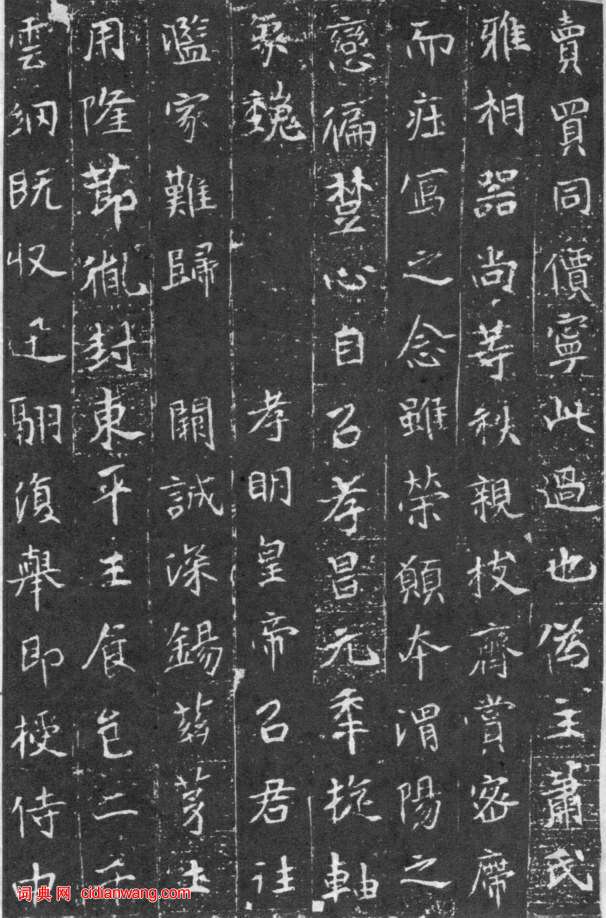 賣買同價寧此過也偽主蕭氏
雅相器尚等秩親枝齊賞密席
而莊寫之念雖榮願本渭陽之
戀偏楚心自以孝昌元年旋軸
象魏 孝明皇帝以君往
濫家難歸 闕誠深錫茲茅土
用隆節胤封東平王食邑二千
雲網既收逸翮復舉即授侍中
词典网 cidianwang.com